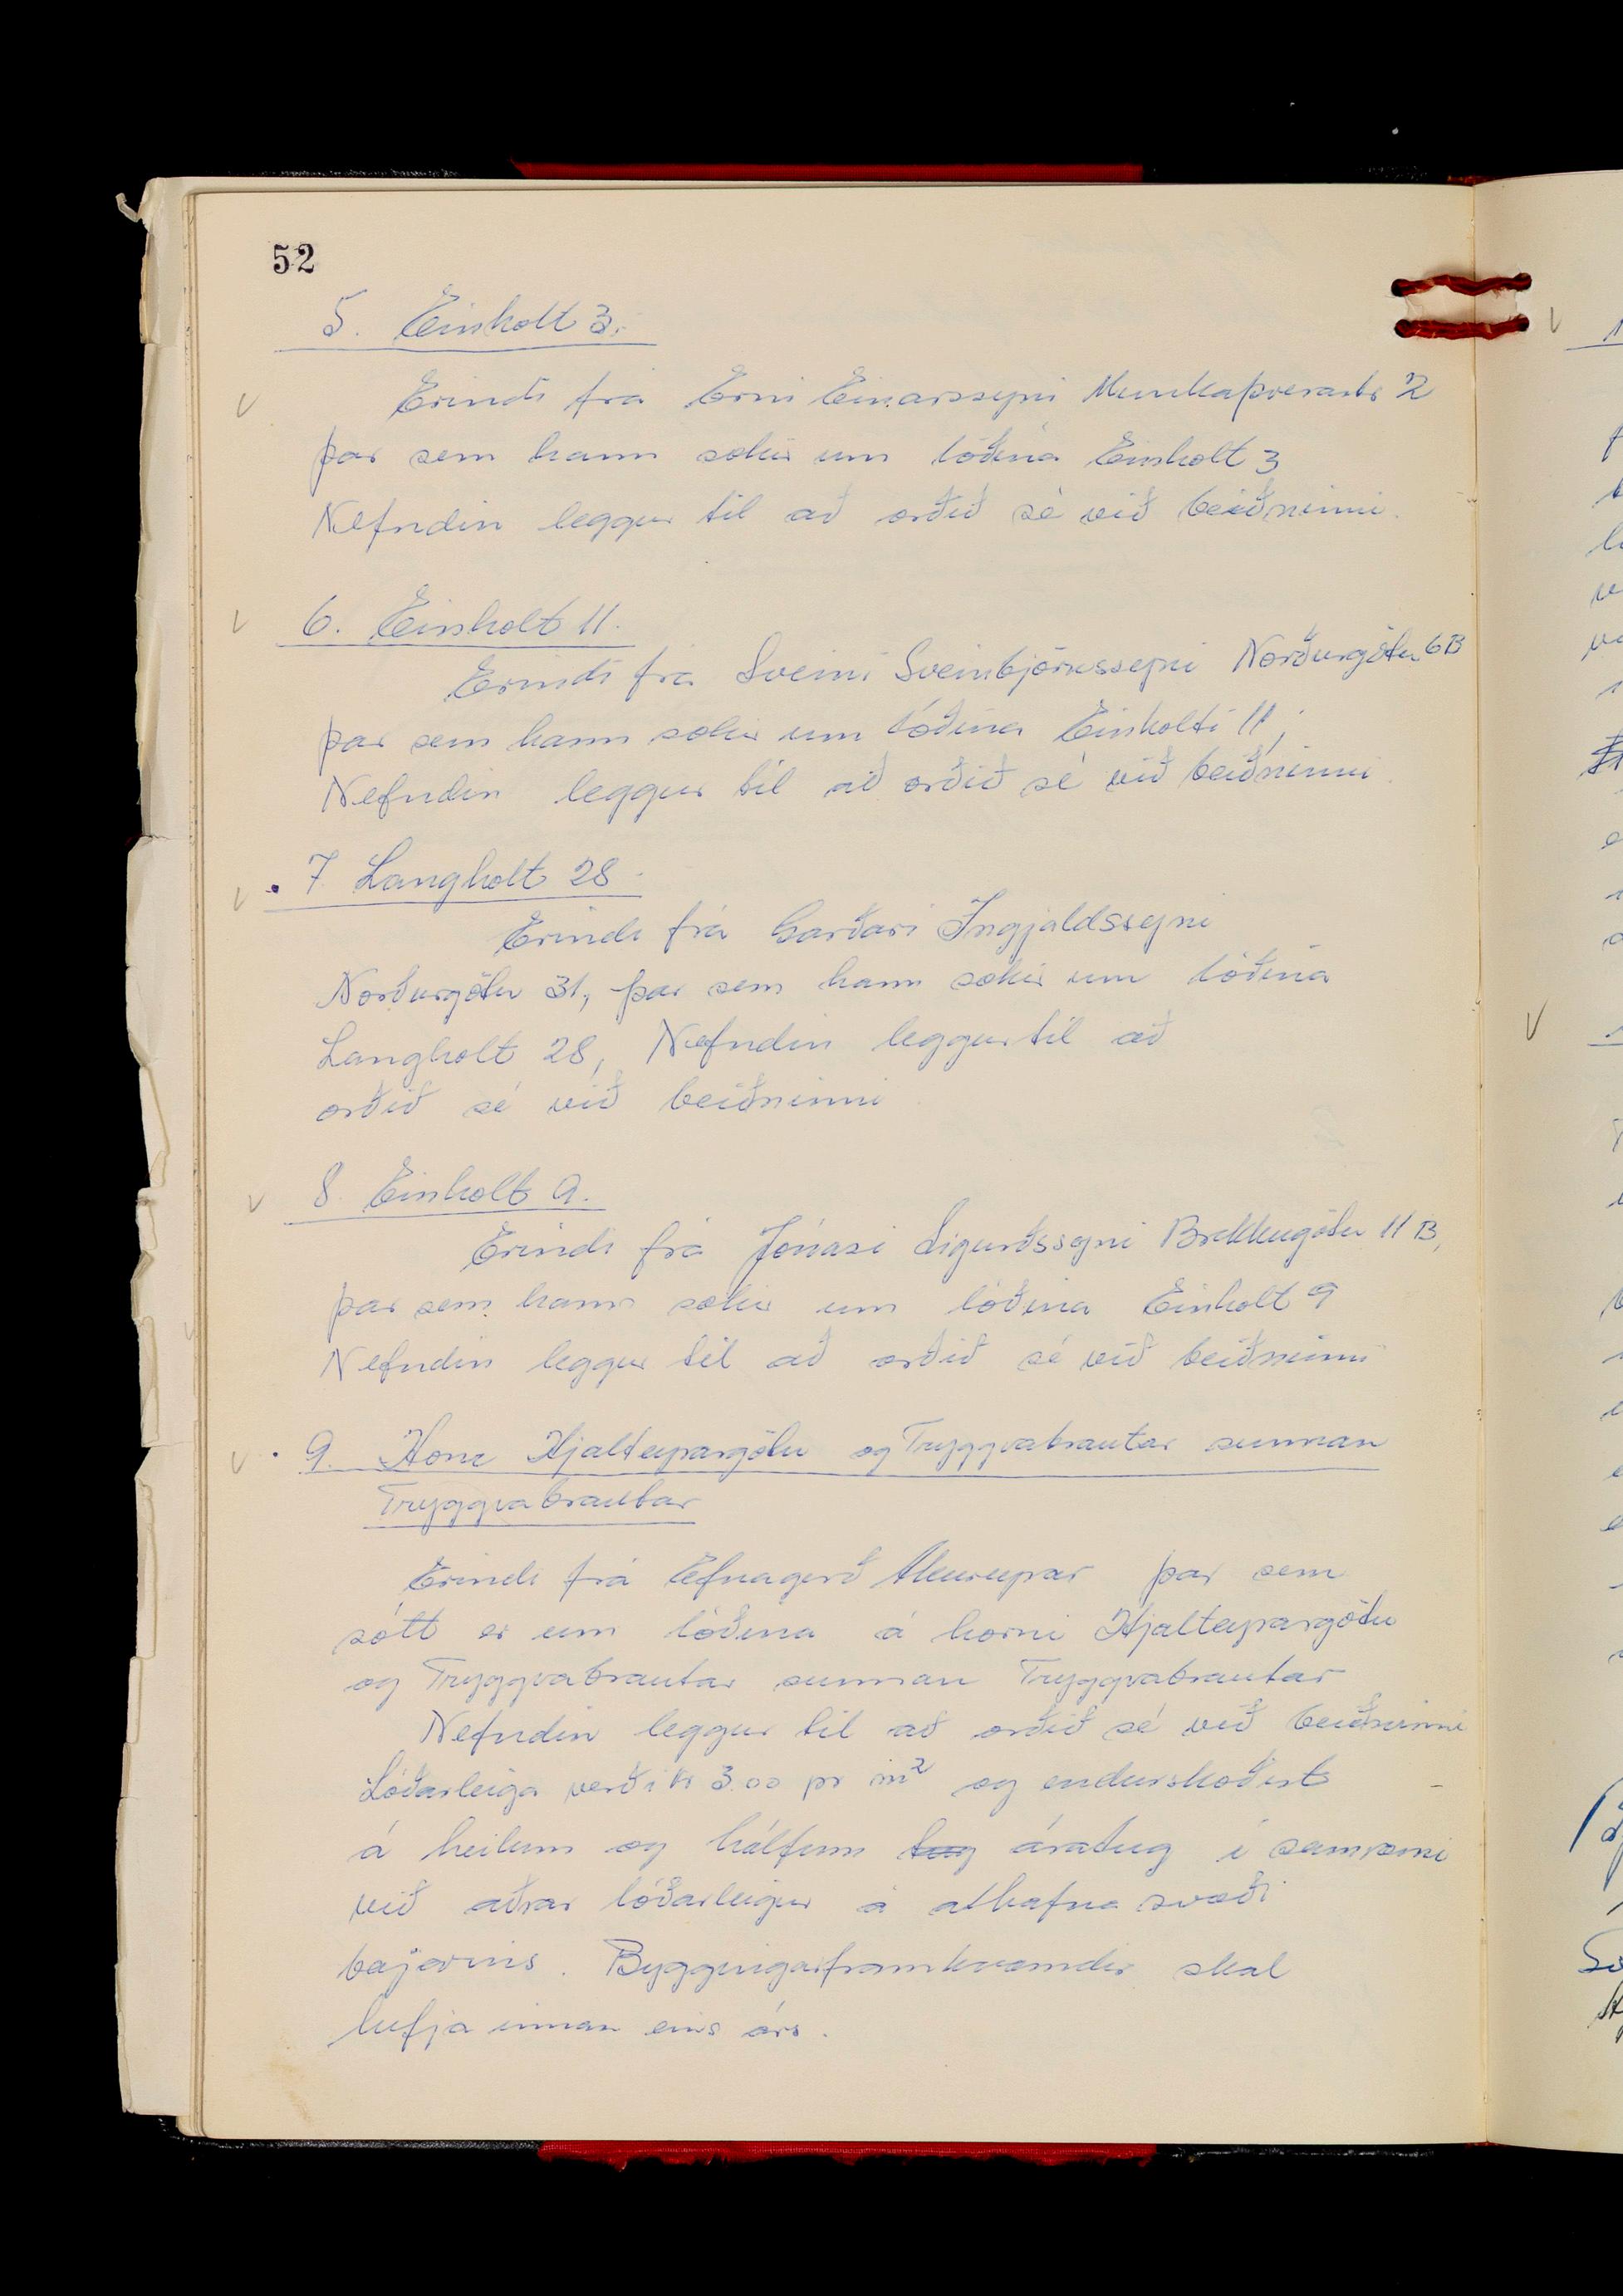 52
5. Einholt 3.
Erindi frá Erni Einarssyni Munkaþverárstr 2
þar sem hann sækir um lóðina Einholt 3
Nefndin leggur til að orðið sé við beiðninni.
6. Einholt 11.
Erindi frá Sveini Sveinbjörnssyni Norðurgötu 6B
þar sem hann sækir um lóðina Einholti 11,
Nefndin leggur til að orðið sé við beiðninni.
7. Langholt 28.
Erindi frá Garðari Ingjaldssyni
Norðurgötu 31, þar sem hann sækir um lóðina
Langholt 28, Nefndin leggur til að
orðið sé við beiðninni
8. Einholt 9.
Erindi frá Jónasi Sigurðssyni Brekkugötu 11B,
þar sem hann sækir um lóðina Einholt 9
Nefndin leggur til að orðið sé við beiðninni
9. Horn Hjalteyrargötu og Tryggvabrautar sunnan
Tryggvabrautar
Erindi frá Efnagerð Akureyrar þar sem
sótt er um lóðina á horni Hjalteyrargötu
og Tryggvabrautar sunnan Tryggvabrautar
Nefndin leggur til að orðið sé við beiðninni
Lóðarleiga verði kr 3.00 pr m² og endurskoðist
á heilum og hálfum tug áratug í samræmi
við aðrar lóðarleigur á athafna svæði
bæjarins. Byggingarframkvæmdir skal
hefja innan eins árs.